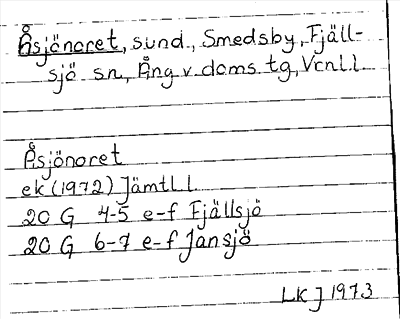 Åsjönoret, sund., Smedsby, Fjäll-
sjö sn, Ång v. doms. tg, Vrnl.l.
Åsjönoret
ek (1972) Jämtl. l.
20 G 4-5 e-f Fjällsjö
20 G 6-7 e-f Jansjö
LKJ 1973